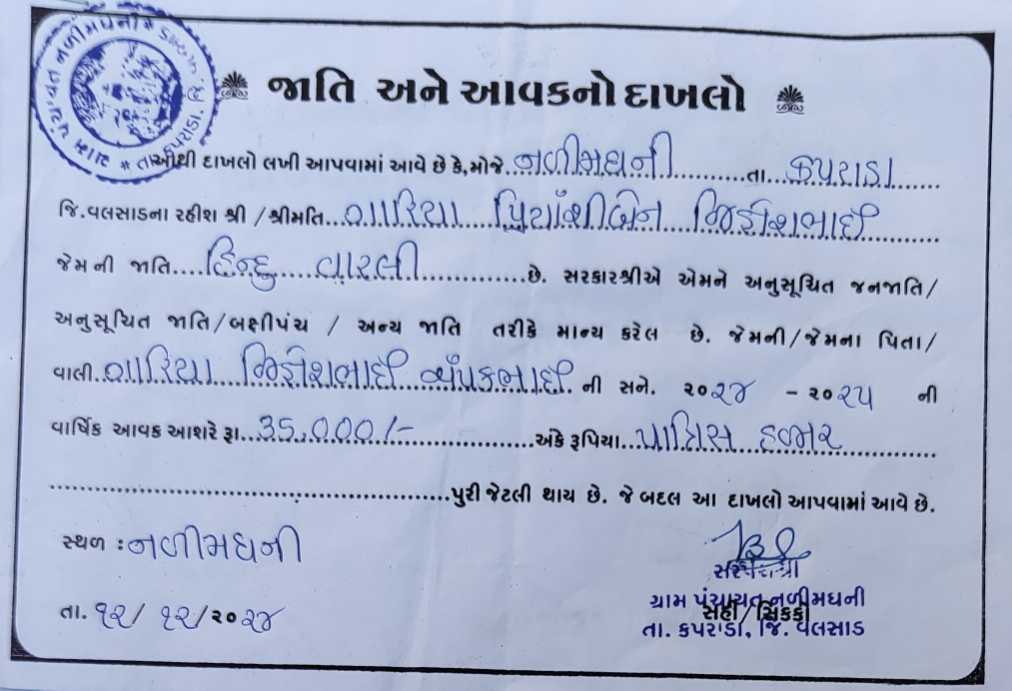 ગ્રામ પંચાયત નળીમધની * તા. કપરાડા,
જાતિ અને આવકનો દાખલો
આથી દાખલો લખી આપવામાં આવે છે કે, મોજે. નળીમધની તા. કપરાડા
જિ.વલસાડના રહીશ શ્રી / શ્રીમતિ ગારિયા પ્રિયાંશીબેન જિજ્ઞેશભાઈ
જેમની જાતિ હિન્દુ વારલી છે. સરકારશ્રીએ એમને અનુસૂચિત જનજાતિ/
અનુસૂચિત જાતિ/બક્ષીપંચ / અન્ય જાતિ તરીકે માન્ય કરેલ છે. જેમની/જેમના પિતા/
વાલી ગારિયા જિજ્ઞેશભાઈ ચંપકભાઈ ની સને. ૨૦૨૪ - ૨૦૨૫ ની
વાર્ષિક આવક આશરે રૂા. 35,000/- અંકે રૂપિયા પાત્રિસ હજાર
પુરી જેટલી થાય છે. જે બદલ આ દાખલો આપવામાં આવે છે.
સ્થળ : નળીમધની
સરપંચશ્રી
તા. ૧૨/ ૧૨/૨૦૨૪
ગ્રામ પંચાયત નળીમધની
સહી/સિક્કો
તા. કપરાડા, જિ. વલસાડ